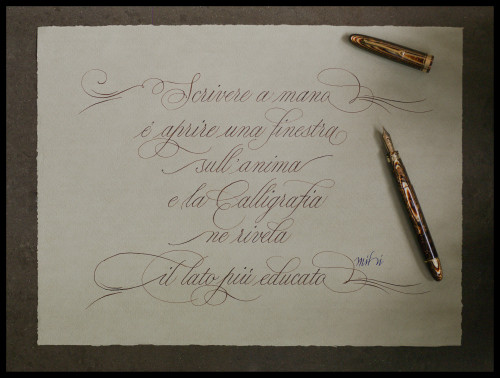 Scrivere a mano
è aprire una finestra
sull'anima
e la Calligrafia
ne rivela
il lato più educato